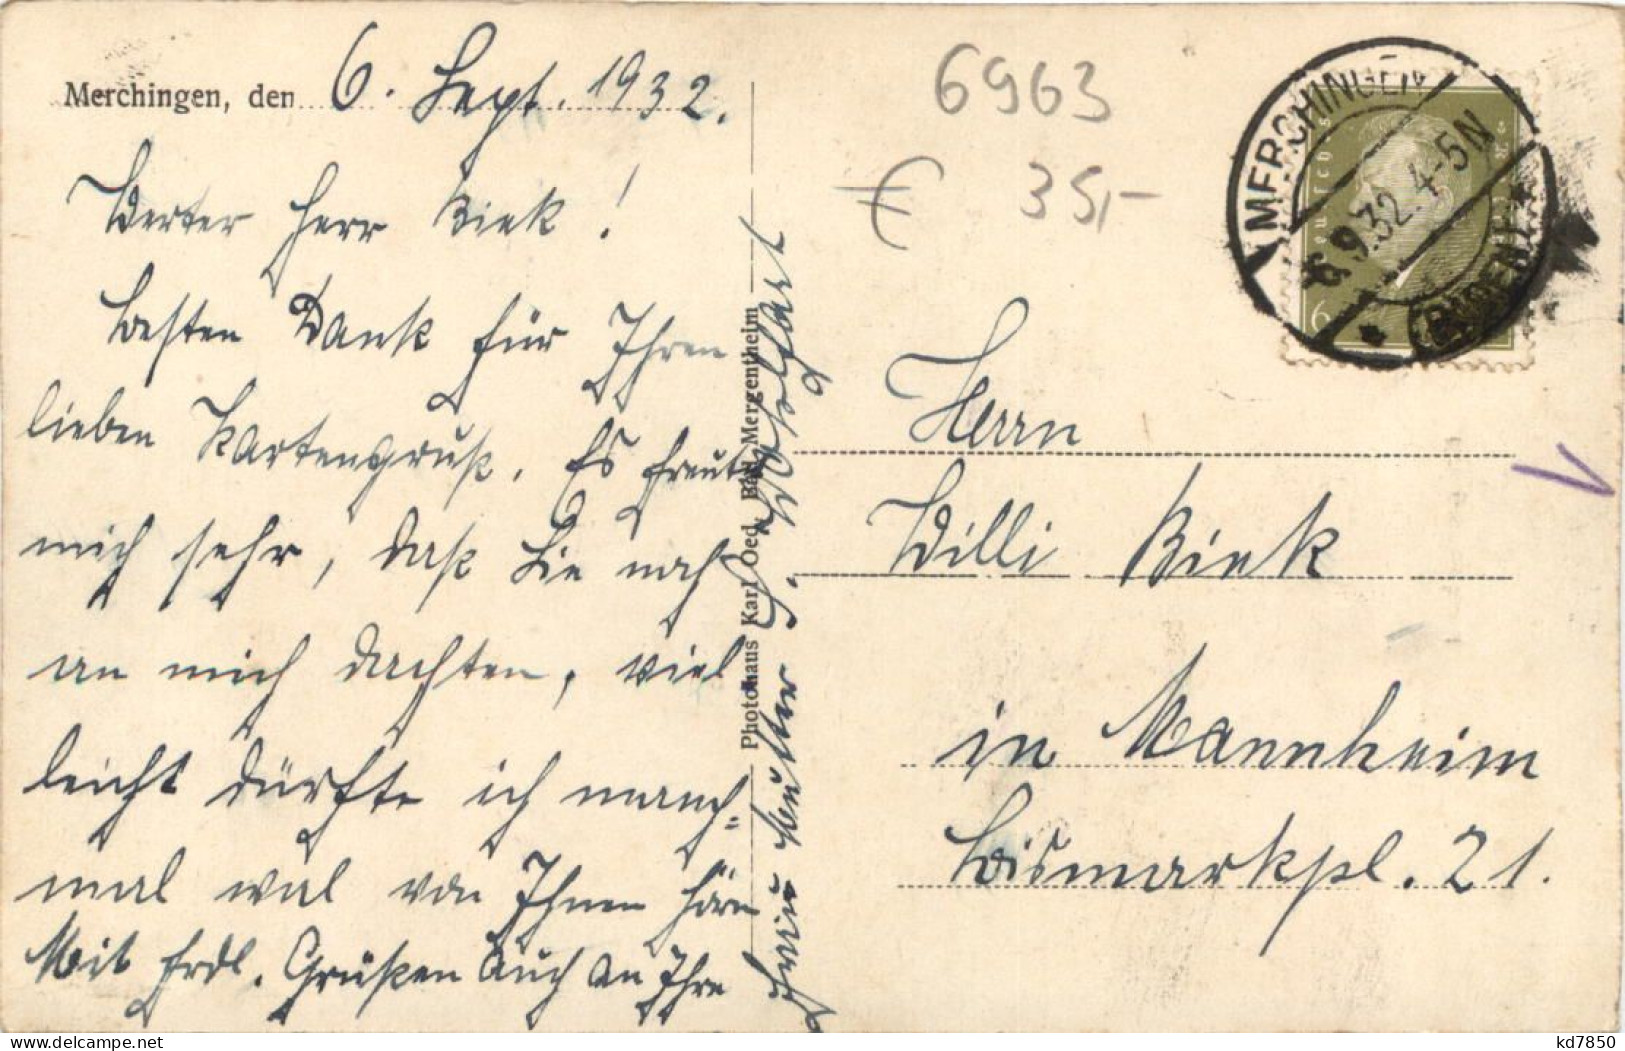 Merchingen, den 6. Sept. 1932.
Werter Herr Biek!
Besten Dank für Ihren
lieben Kartengruß. Es freut
mich sehr, daß Sie noch
an mich dachten, viel
leicht dürfte ich manch-
mal mal von Ihnen hören
Mit frdl. Grüßen auch an Ihre
Mutter
Photohaus Karl Oed, Bad Mergentheim
6963
€ 35,-
MERCHINGEN
6.9.32. 4-5N
(BADEN)
6
Herrn
Willi Biek
in Mannheim
Bismarkpl. 21.
kd7850